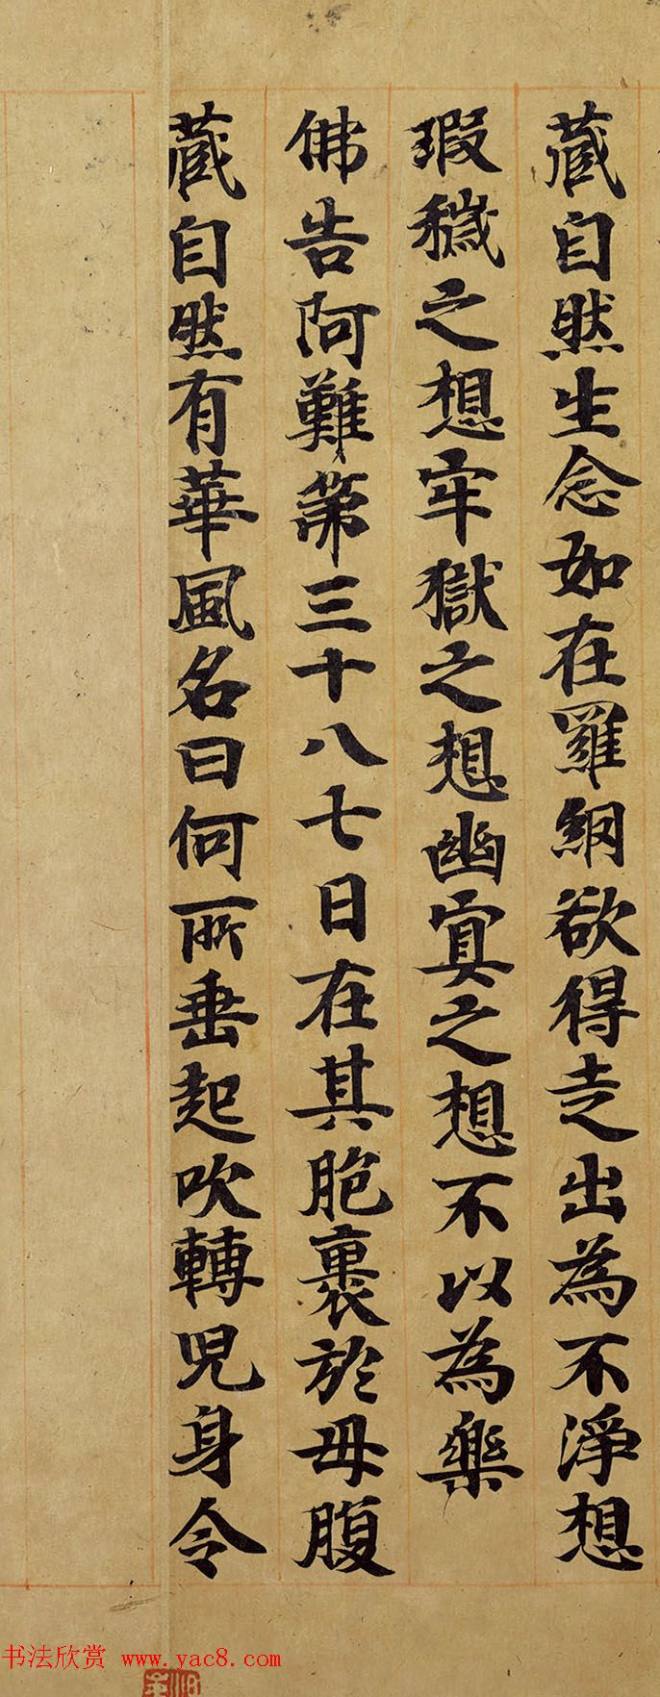 藏自然生念如在羅網欲得走出為不淨想
瑕穢之想牢獄之想幽冥之想不以為樂
佛告阿難第三十八七日在其胞裹於母腹
藏自然有華風名曰何所垂起吹轉兒身令
书法欣赏 www.yac8.com